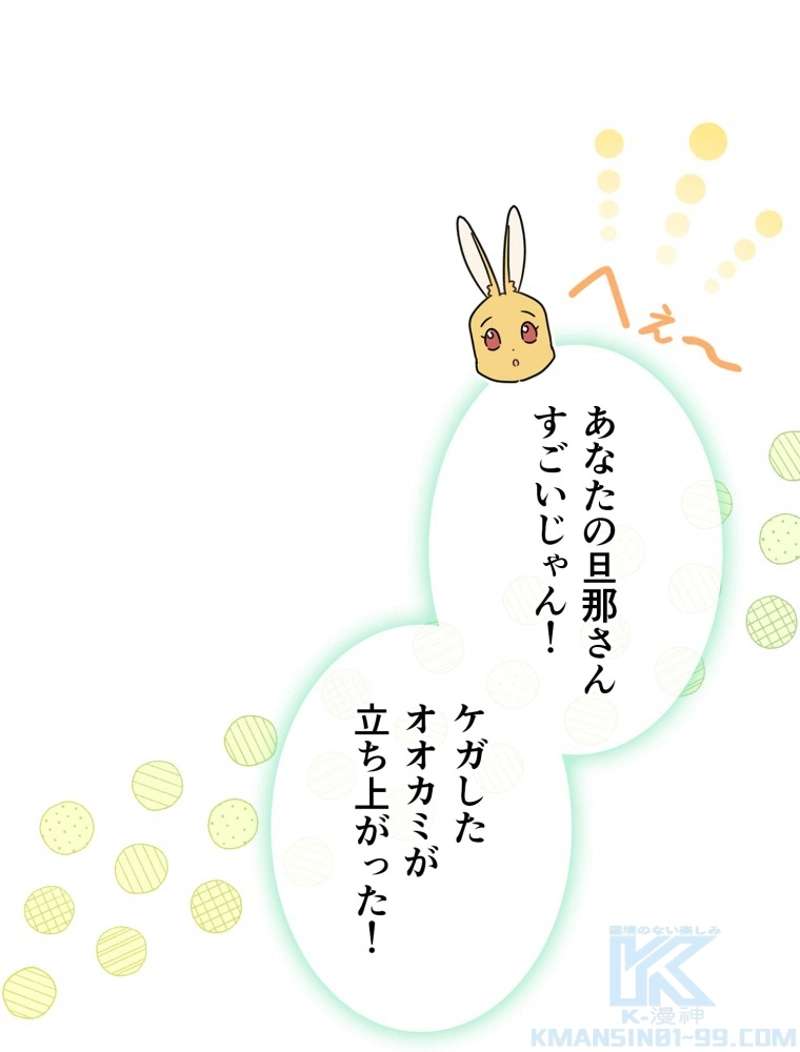 へぇ～
あなたの旦那さん
すごいじゃん！
ケガした
オオカミが
立ち上がった！
限境のない楽しみ
K-漫神
KMANSIN01-99.COM